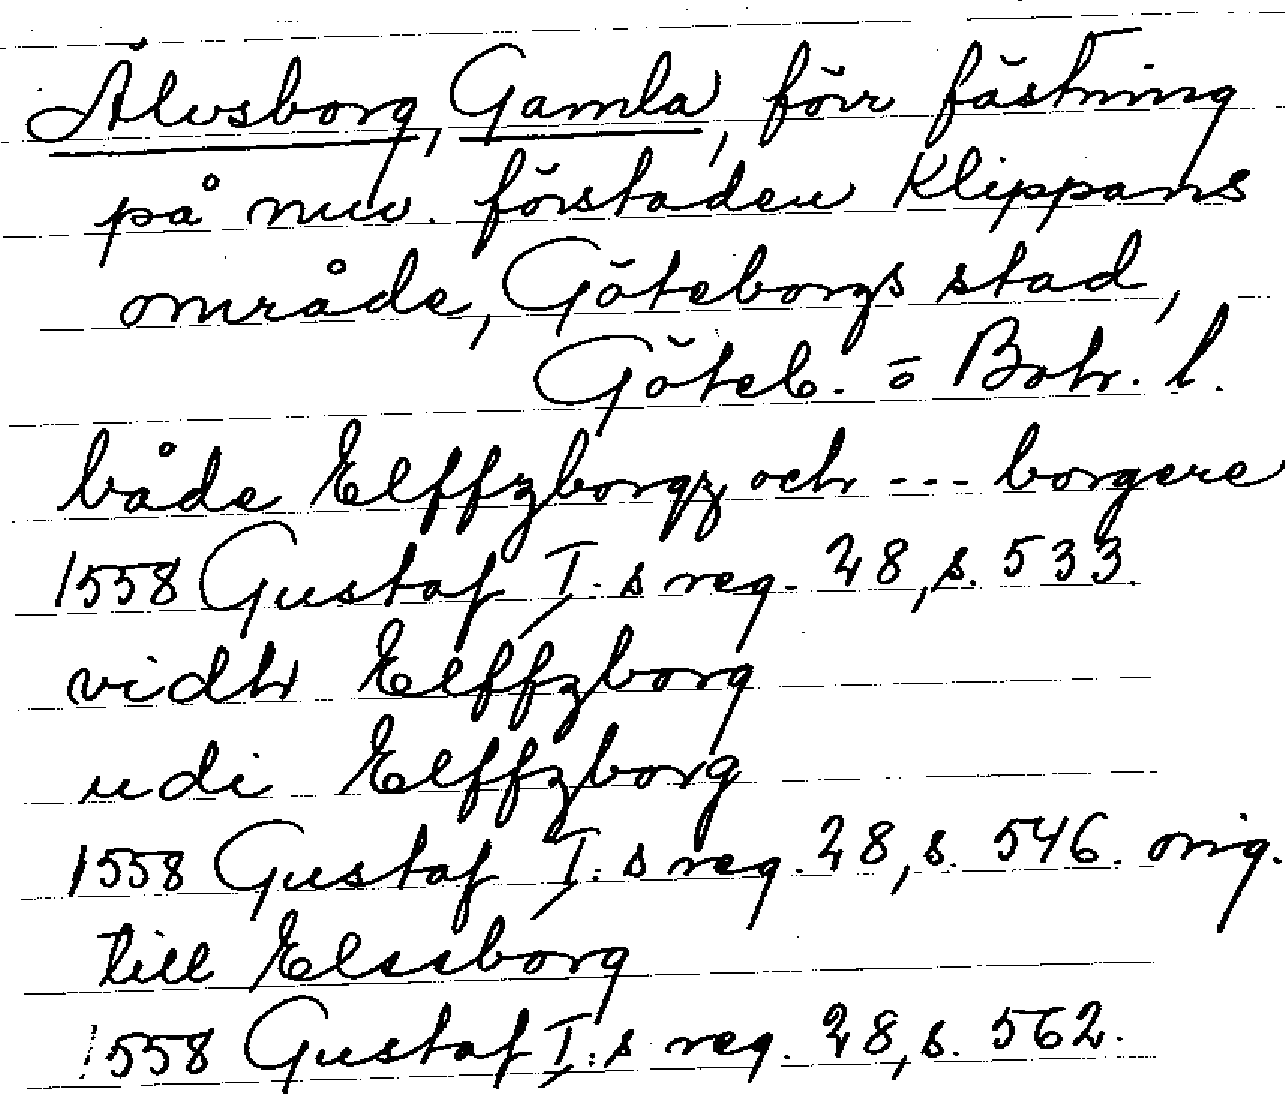 Älvsborg, Gamla, förr fästning
på nuv. förstaden Klippans
område, Göteborgs stad,
Göteb. o Boh. l.
både Elffzborgz och --- borgere
1558 Gustaf I:s reg. 28, s. 533.
vidh Elffzborg
udi Elffzborg
1558 Gustaf I:s reg. 28, s. 546. orig.
till Elssborg
1558 Gustaf I:s reg. 28, s. 562.